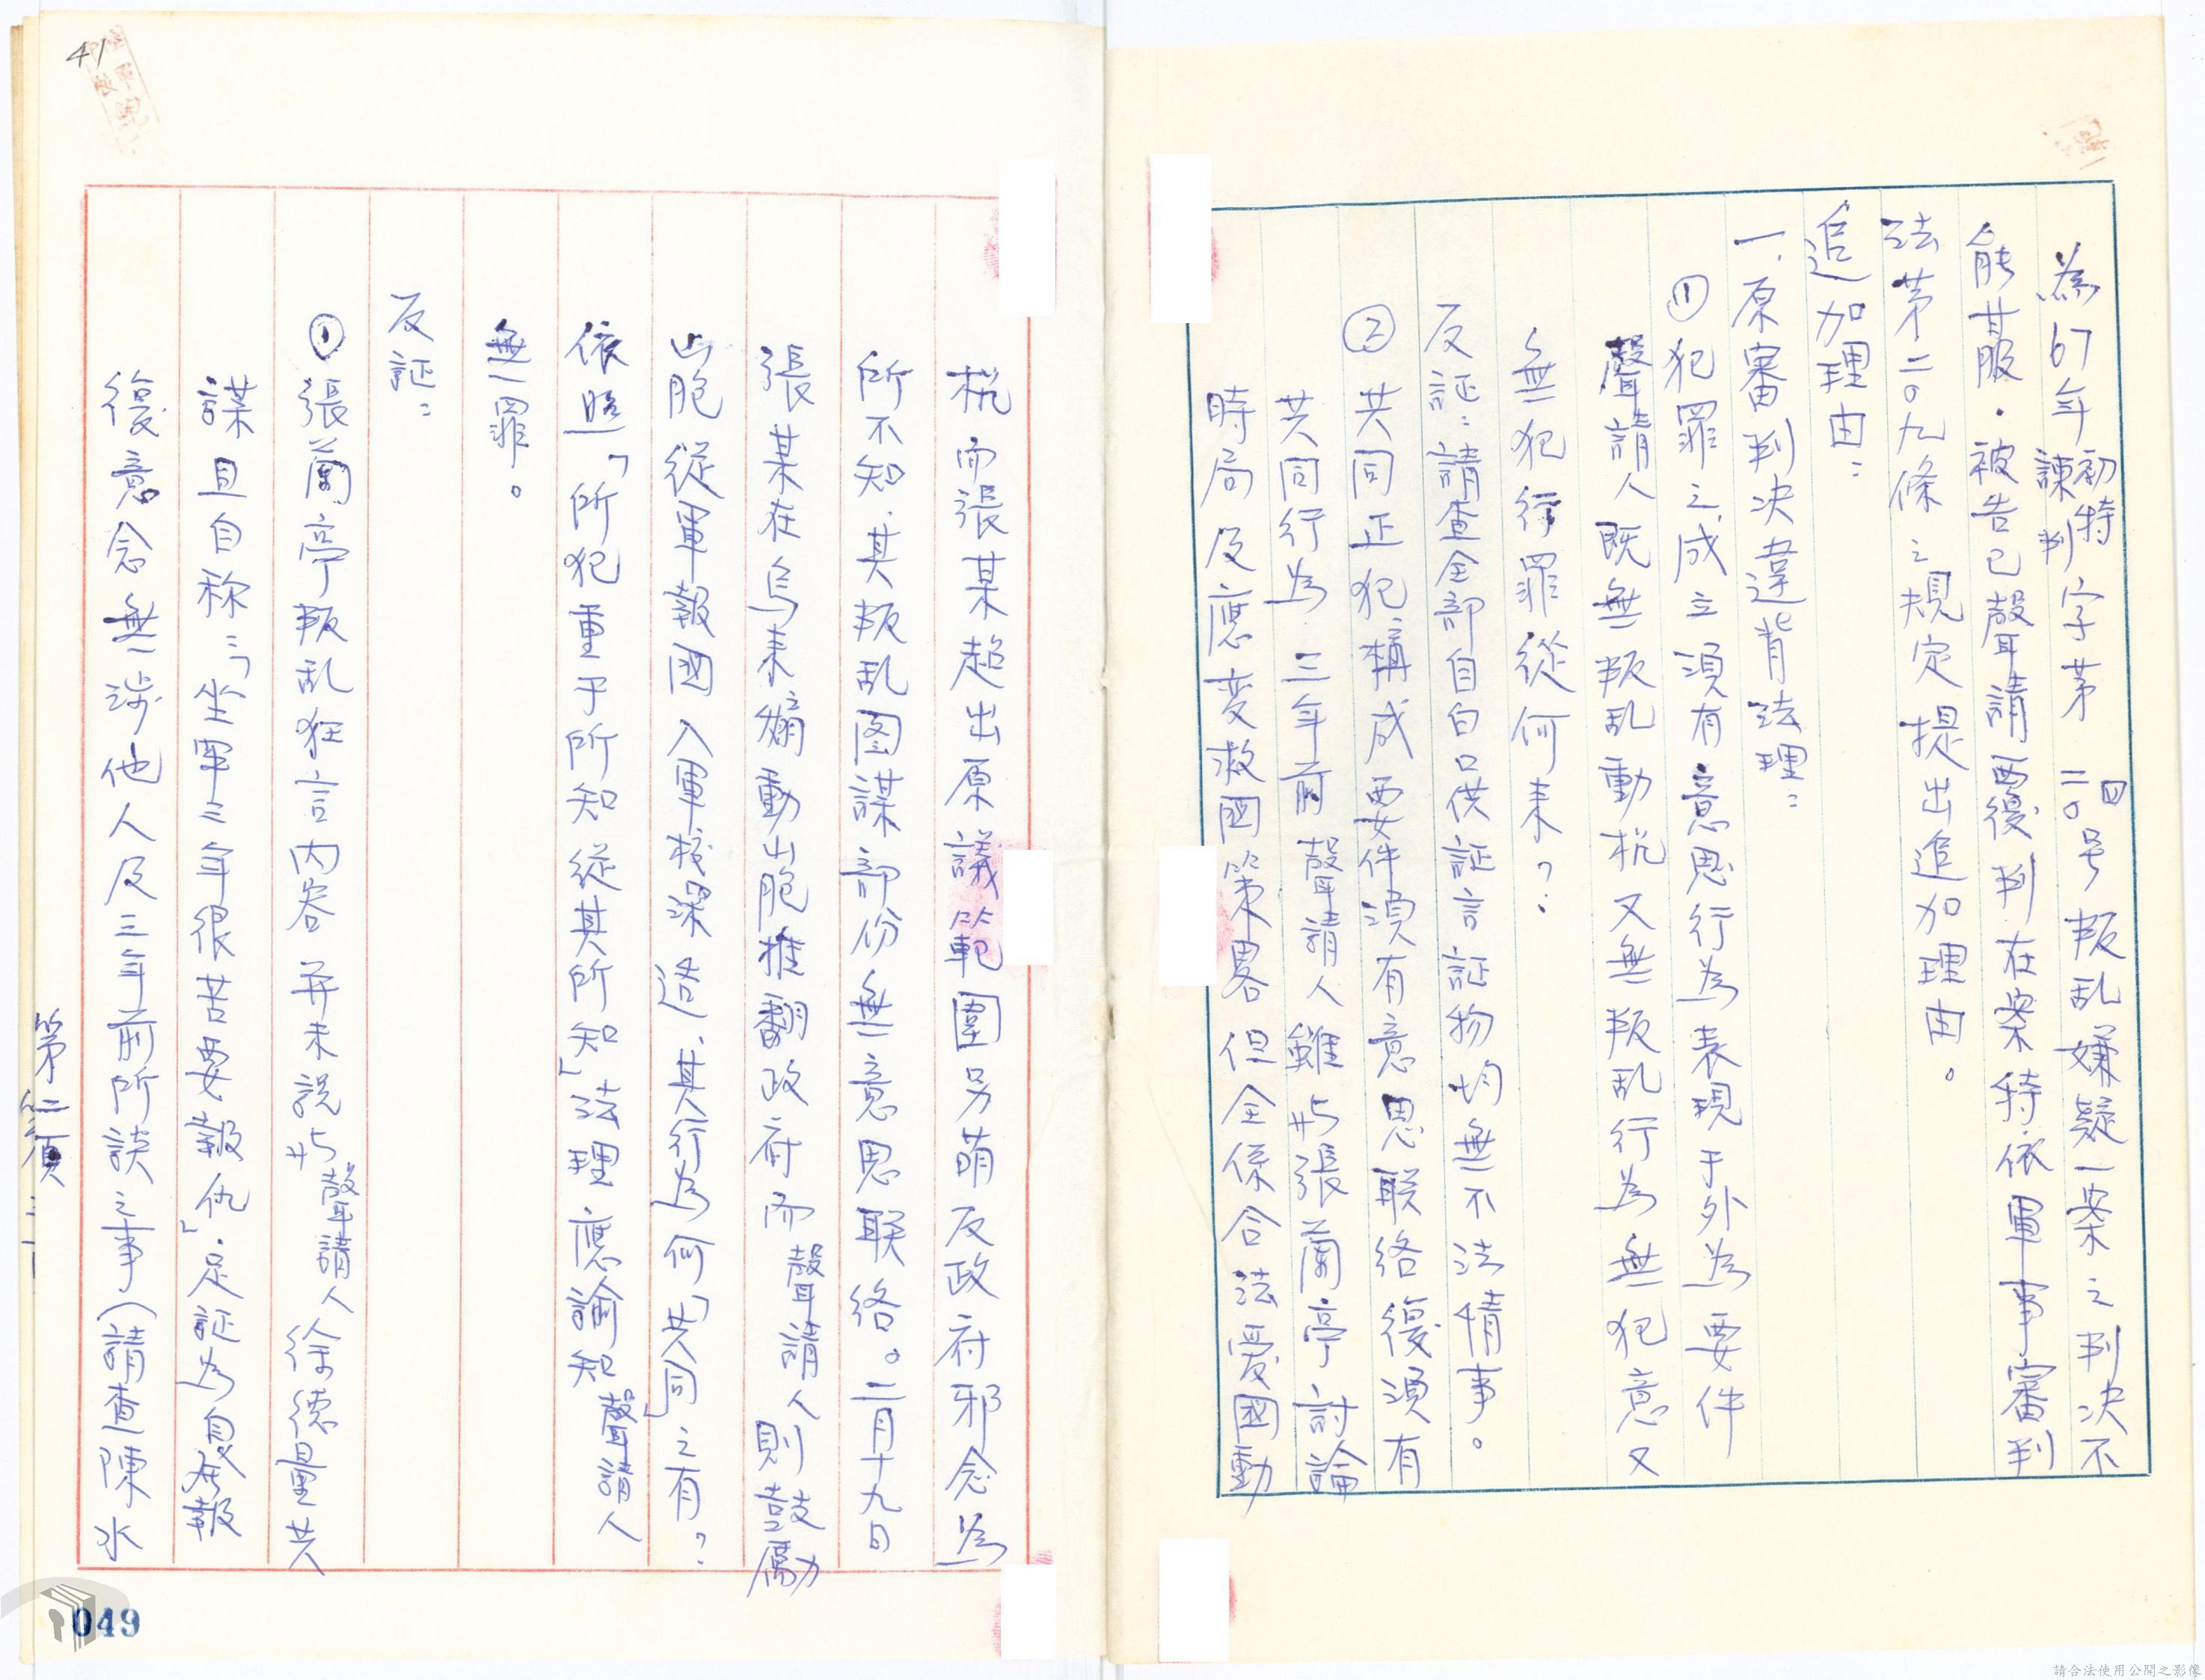 為67年初特諫判字第二〇四号叛乱嫌疑一案之判決不
能甘服.被告已聲請覆判在案特依軍事審判
法第二〇九條之規定提出追加理由。
追加理由:
一、原審判決違背法理:
①犯罪之成立須有意思行為表現于外為要件
聲請人既無叛乱動机又無叛乱行為無犯意又
無犯行罪從何來?
反証:請查全部自白口供証言証物均無不法情事。
②共同正犯構成要件須有意思联络復須有
共同行為.三年前聲請人雖与張蘭亭討論
時局及應变救國策畧但全係合法愛國動
机而張某超出原議範圍另萌反政府邪念為
所不知.其叛乱图謀部份無意思联络。二月十九日
張某在烏來煽動山胞推翻政府而聲請人則鼓勵
山胞從軍報國入軍校深造.其行為何「共同」之有?
依照「所犯重于所知從其所知」法理應諭知聲請人
無罪。
反証:
①張蘭亭叛乱狂言内容并未説与聲請人徐德量共
謀且自称:「坐軍三年很苦要報仇」.足証為自發報
復意念無涉他人及三年前所談之事(請查陳水
第二頁
41
049
請合法使用公開之影像